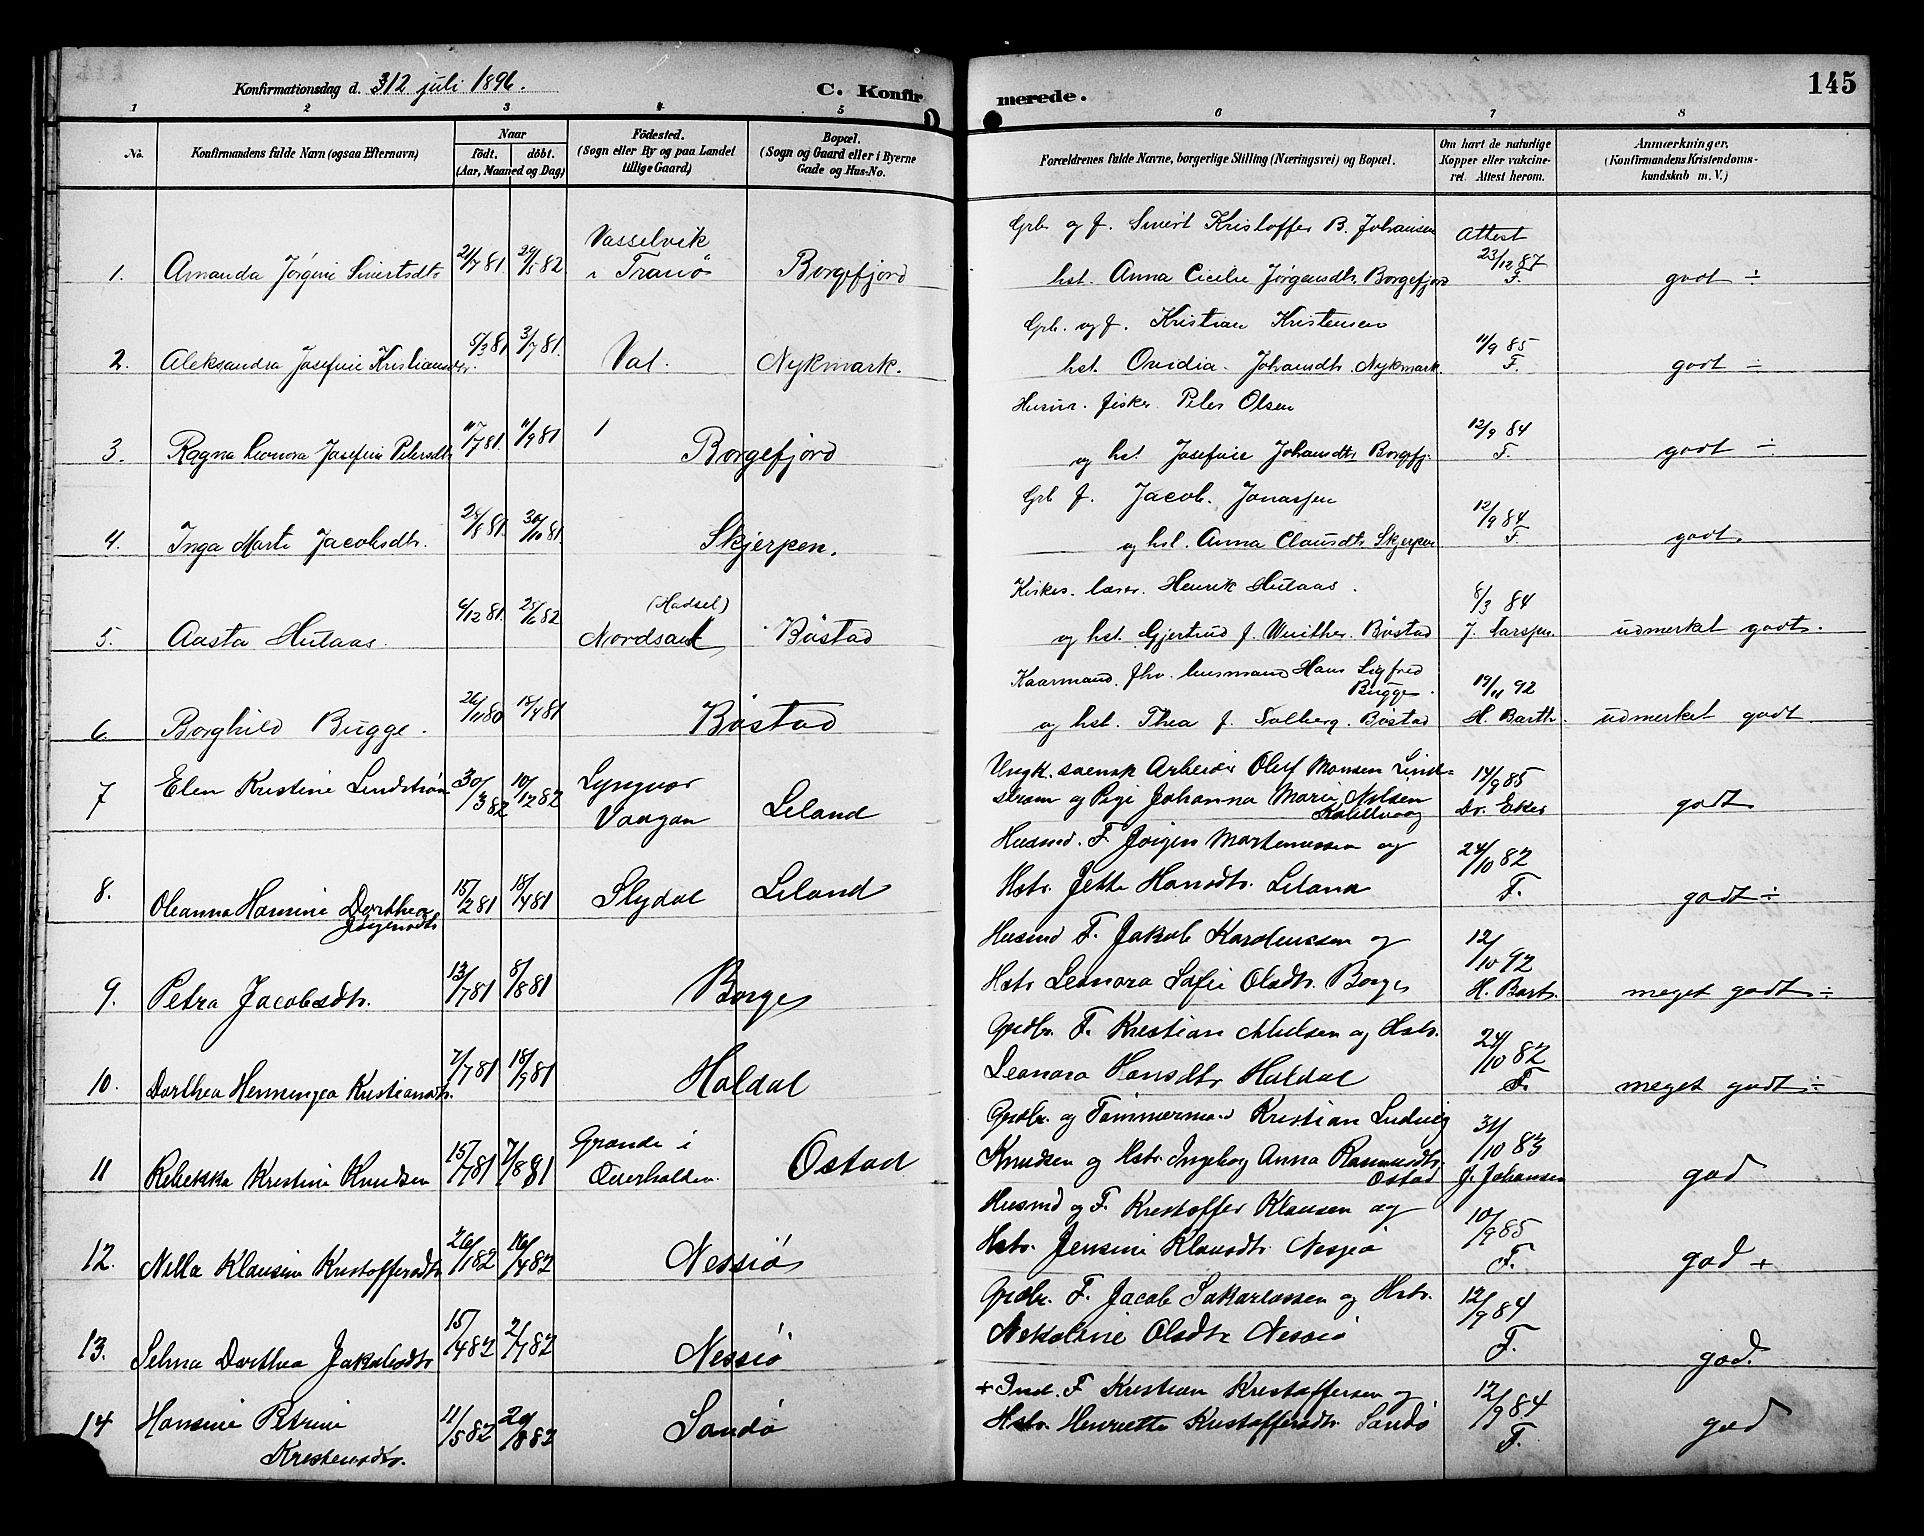 Konfirmationsdag d. 312 juli 1896.
C. Konfir
merede.
145
1 2 3 4 5 6 7 8
No.
Konfirmandens fulde Navn (ogsaa Efternavn)
Naar
födt. döbt.
(Aar, Maaned og Dag)
Födested.
(Sogn eller By og paa Landet
tillige Gaard)
Bopæl.
(Sogn og Gaard eller i Byerne
Gade og Hus-No.
Forældrenes fulde Navne, borgerlige Stilling (Næringsvei) og Bopæl.
Om havt de naturlige
Kopper eller vakcine-
ret. Attest herom.
Anmærkninger.
(Konfirmandens Kristendoms-
kundskab m. V.)
1. Amanda Jørgine Sivertsdtr 21/7 81 29/5 82 Vasselvik
i Tranö Borgefjord
Grb og f. Sivert Kristoffer B. Johansen
hst. Anna Cicilie Jørgensdtr. Borgefjord
Attest
23/12 87
F.
godt ÷
2. Aleksandra Josefine Kristiansdtr. 5/3 81 3/7 81. Val. Nykmark.
Grb. og f. Kristian Kristensen
hst. Ovidia Johansdtr. Nykmark.
11/9 85
F.
godt ÷
3. Ragna Leonora Josefine Petersdtr 11/7 81. 11/9 81 Borgefjord
Husm. fisker. Peter Olsen
og hst. Josefine Johansdtr. Borgefj.
12/9 84
F.
godt ÷
4. Inga Marte Jacobsdtr. 24/8 81. 30/10 81. Skjerpen.
Grb f. Jacob. Jonassen
og hst. Anna Clausdtr. Skjerpen
12/9 84
F.
godt.
5. Aasta Hutaas. 6/12 81. 25/6 82. (Hadsel)
Nordsand Böstad
Kirkes. lærer. Henrik Hutaas.
og hst. Gjertrud f. Winther. Böstad
8/3 84
J. Larssen.
udmerket godt.
6. Borghild Bugge. 26/11 80 18/4 81 Böstad
Kaarmand. fhv. husmand Hans Sigfred
Bugge.
og hst. Thea f. Solberg. Böstad
19/11 92
H. Barth.
udmerket godt
7 Elen Kristine Lindström 30/3 82 10/12 82 Lyngvær
Vaagan Leland
Ungk. svensk Arbeider Oluf Monsen Lind-
strøm og Pige Johanna Marie Nilsen
14/9 85
Dr. Eker
godt
8. Oleanna Hansine Dorthea
Jørgensdtr 15/2 81 18/4 81 Slydal Leland
Husmd. F. Jørgen Martenussen og
Hstr. Jette Hansdtr. Leland
24/10 82
F.
godt ÷
9. Petra Jacobsdtr. 13/7 81 8/8 81 Borge
Husmd F. Jakob Karoliussen og
Hstr Leonora Sofie Olsdtr. Borge
12/10 92
H. Barth.
meget godt ÷
10. Dorthea Henningea Kristiansdtr. 7/7 81 18/9 81 Haldal
Grdbr. F. Kristian Nilsen og Hstr.
Leonora Hansdtr Haldal
24/10 82
F.
meget godt ÷
11 Rebekka Kristine Knudsen 15/7 81 7/8 81 Grande i
Overhalden. Ostad
Grdbr. og Tømmermand Kristian Ludvig
Knudsen og Hstr Ingeborg Anna Rasmusdtr.
Ostad
31/10 83
J. Johansen
god
12. Nilla Klausine Kristoffersdtr 26/1 82 16/4 82 Nessiö
Husmd og F. Kristoffer Klausen og
Hstr. Jensine Klausdtr. Nessiö
10/9 85
F.
god +
13. Selma Dorthea Jakobsdtr 15/4 82 2/7 82 Nessiö
Grdbr. F. Jacob Sakariassen og Hstr.
Nikoline Olsdtr Nessiö
12/9 84
F.
god.
14 Hansine Petrine
Kristensdtr. 11/5 82 20/8 82 Sandö
+Ind. F Kristian Kristoffersen og
Hstr. Henriette Kristoffersdtr. Sandö
12/9 84
F.
god